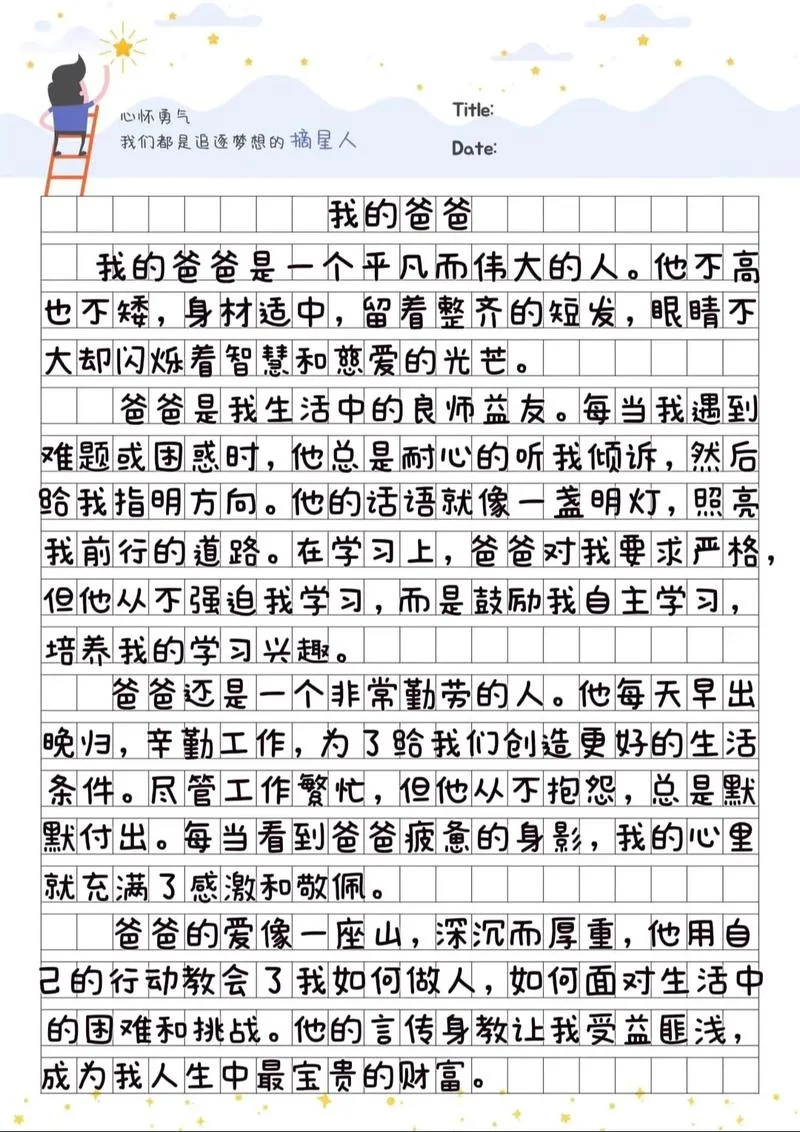 心怀勇气
我们都是追逐梦想的摘星人
Title:
Date:
我的爸爸
我的爸爸是一个平凡而伟大的人。他不高
也不矮，身材适中，留着整齐的短发，眼睛不
大却闪烁着智慧和慈爱的光芒。
爸爸是我生活中的良师益友。每当我遇到
难题或困惑时，他总是耐心的听我倾诉，然后
给我指明方向。他的话语就像一盏明灯，照亮
我前行的道路。在学习上，爸爸对我要求严格，
但他从不强迫我学习，而是鼓励我自主学习，
培养我的学习兴趣。
爸爸还是一个非常勤劳的人。他每天早出
晚归，辛勤工作，为了给我们创造更好的生活
条件。尽管工作繁忙，但他从不抱怨，总是默
默付出。每当看到爸爸疲惫的身影，我的心里
就充满了感激和敬佩。
爸爸的爱像一座山，深沉而厚重，他用自
己的行动教会了我如何做人，如何面对生活中
的困难和挑战。他的言传身教让我受益匪浅，
成为我人生中最宝贵的财富。